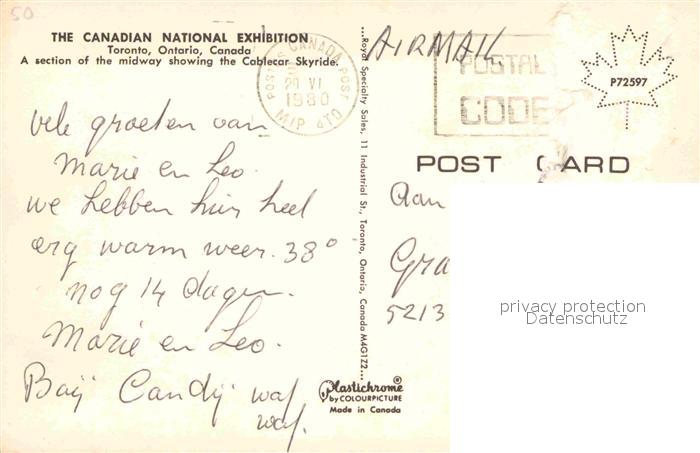 50
THE CANADIAN NATIONAL EXHIBITION
Toronto, Ontario, Canada
A section of the midway showing the Cablecar Skyride.
CANADA POST
20 VI
1980
AIRMAIL
POSTAL
CODE
P72597
POST CARD
vele groeten van
Marie en Leo.
we hebben hier heel
erg warm weer. 38°
nog 14 dagen.
Marie en Leo.
Baij Candij waf
waf.
...Royal Specialty Sales, 11 Industrial St., Toronto, Ontario, Canada M4G1Z2...
Plastichrome®
by COLOURPICTURE
Made in Canada
Aan
Gra
5213
privacy protection
Datenschutz